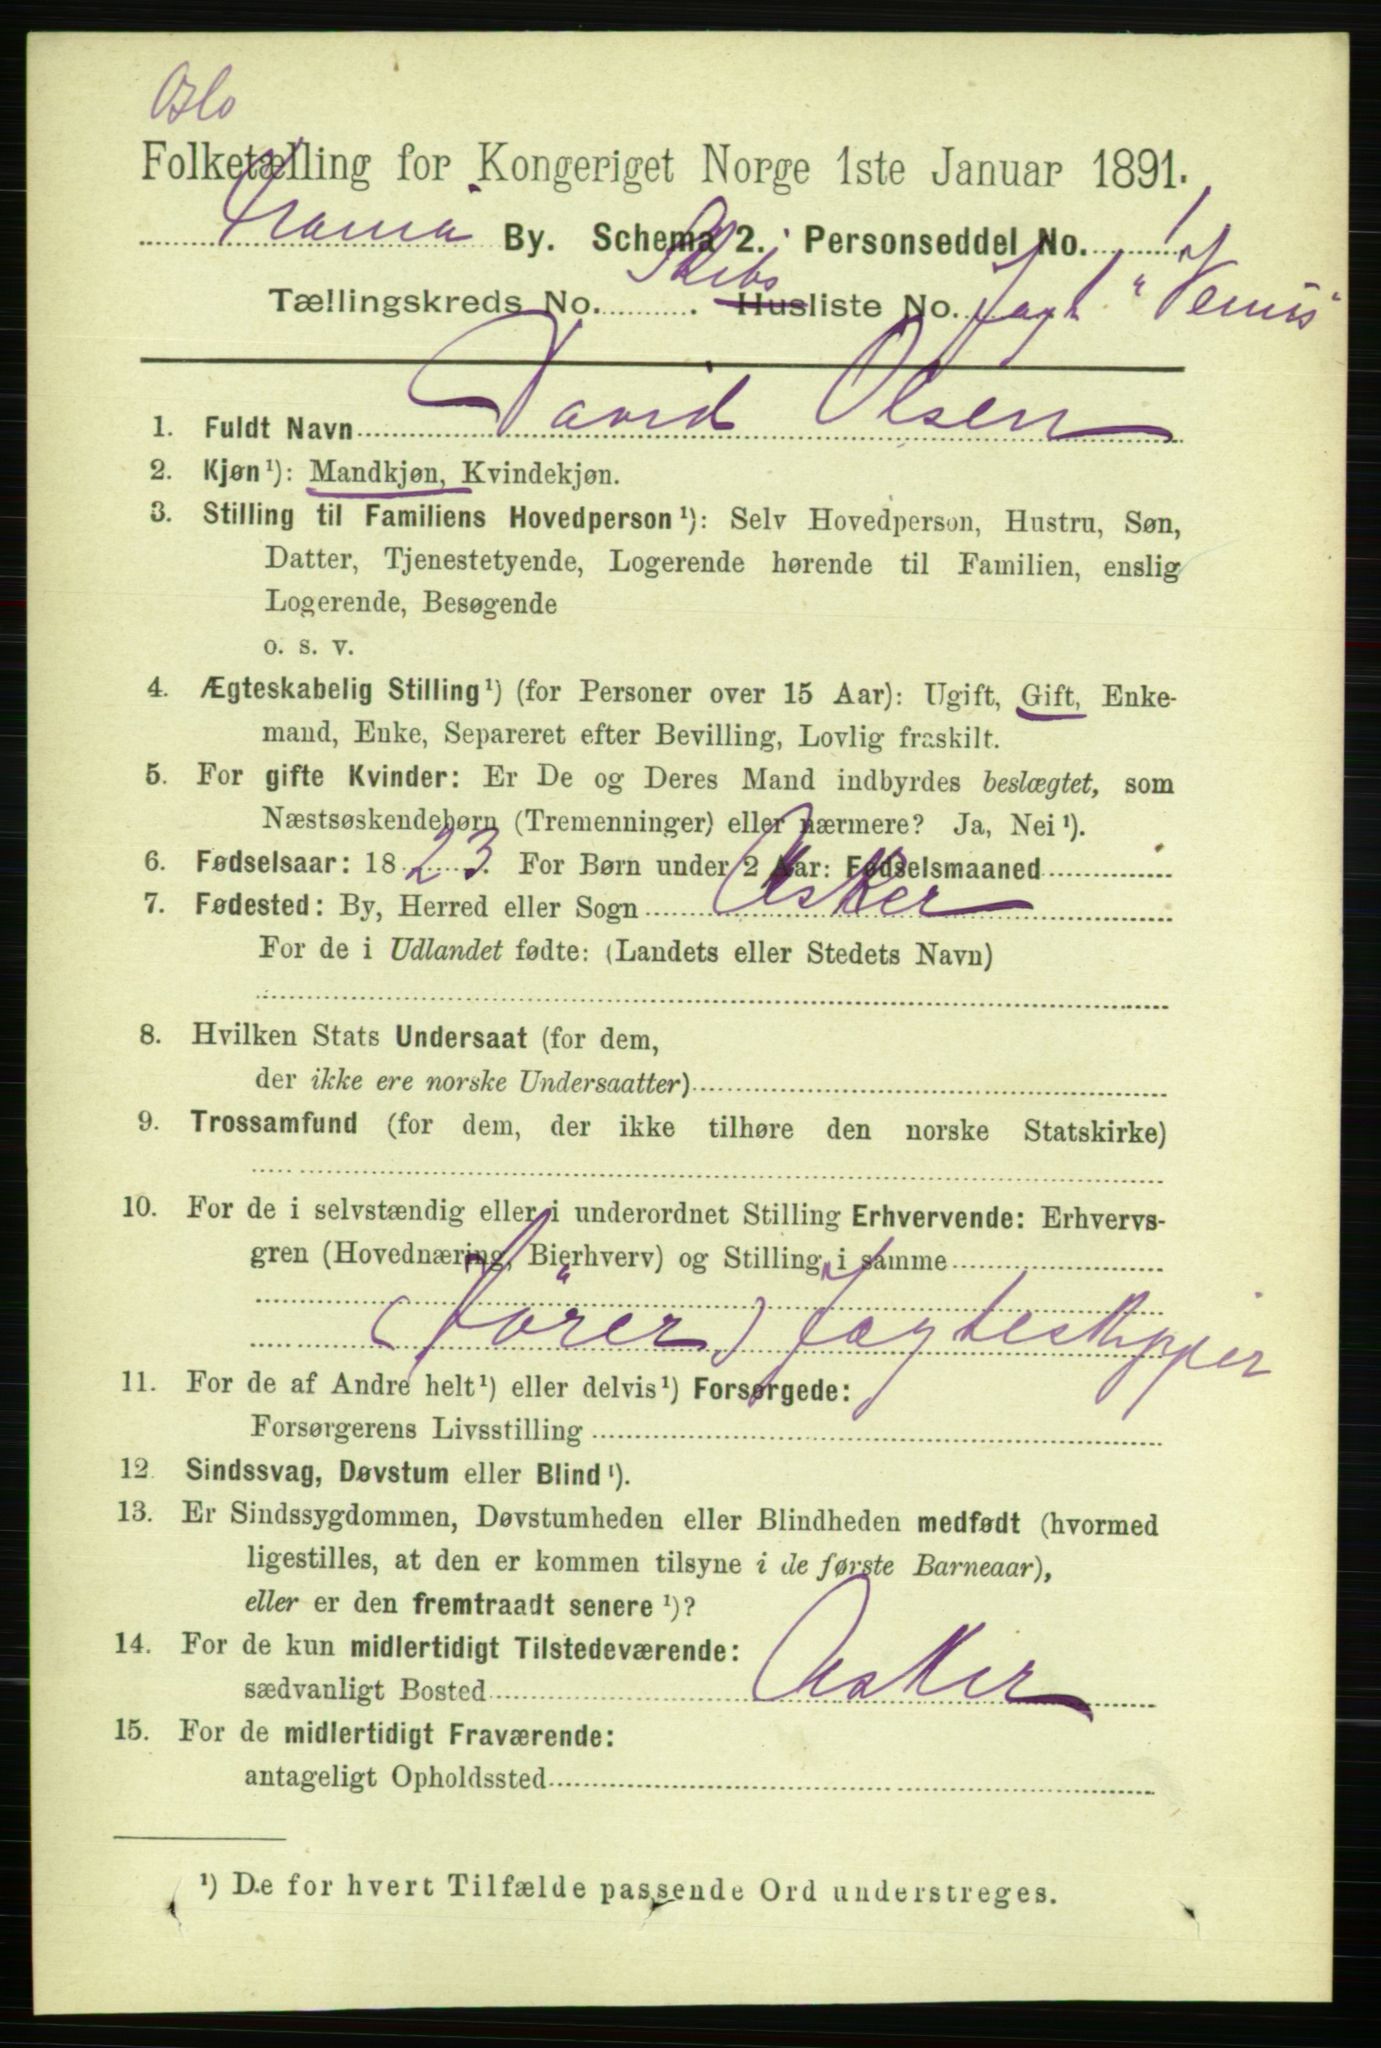 Oslo
Folketælling for Kongeriget Norge 1ste Januar 1891.
By. Schema 2. Personseddel No. 1
Tællingskreds No. . Skibs Husliste No. Jagt "Venus" af
1. Fuldt Navn David Olsen
2. Kjøn ¹): Mandkjøn, Kvindekjøn.
3. Stilling til Familiens Hovedperson ¹): Selv Hovedperson, Hustru, Søn,
Datter, Tjenestetyende, Logerende hørende til Familien, enslig
Logerende, Besøgende
o. s. v.
4. Ægteskabelig Stilling ¹) (for Personer over 15 Aar): Ugift, Gift, Enke-
mand, Enke, Separeret efter Bevilling, Lovlig fraskilt.
5. For gifte Kvinder: Er De og Deres Mand indbyrdes beslægtet, som
Næstsøskendebørn (Tremenninger) eller nærmere? Ja, Nei ¹).
6. Fødselsaar: 1823. For Børn under 2 Aar: Fødselsmaaned
7. Fødested: By, Herred eller Sogn Asker
For de i Udlandet fødte: (Landets eller Stedets Navn)
8. Hvilken Stats Undersaat (for dem,
der ikke ere norske Undersaatter)
9. Trossamfund (for dem, der ikke tilhøre den norske Statskirke)
10. For de i selvstændig eller i underordnet Stilling Erhvervende: Erhvervs-
gren (Hovednæring, Bierhverv) og Stilling i samme
(Förer) Jagteskipper
11. For de af Andre helt ¹) eller delvis ¹) Forsørgede:
Forsørgerens Livsstilling
12. Sindssvag, Døvstum eller Blind ¹).
13. Er Sindssygdommen, Døvstumheden eller Blindheden medfødt (hvormed
ligestilles, at den er kommen tilsyne i de første Barneaar),
eller er den fremtraadt senere ¹)?
14. For de kun midlertidigt Tilstedeværende:
sædvanligt Bosted Asker
15. For de midlertidigt Fraværende:
antageligt Opholdssted
¹) De for hvert Tilfælde passende Ord understreges.